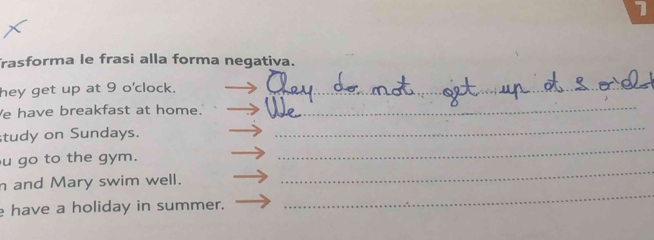 7
x
rasforma le frasi alla forma negativa.
hey get up at 9 o'clock. They do not get up at 9 o'clo
e have breakfast at home. We
study on Sundays.
u go to the gym.
n and Mary swim well.
e have a holiday in summer.